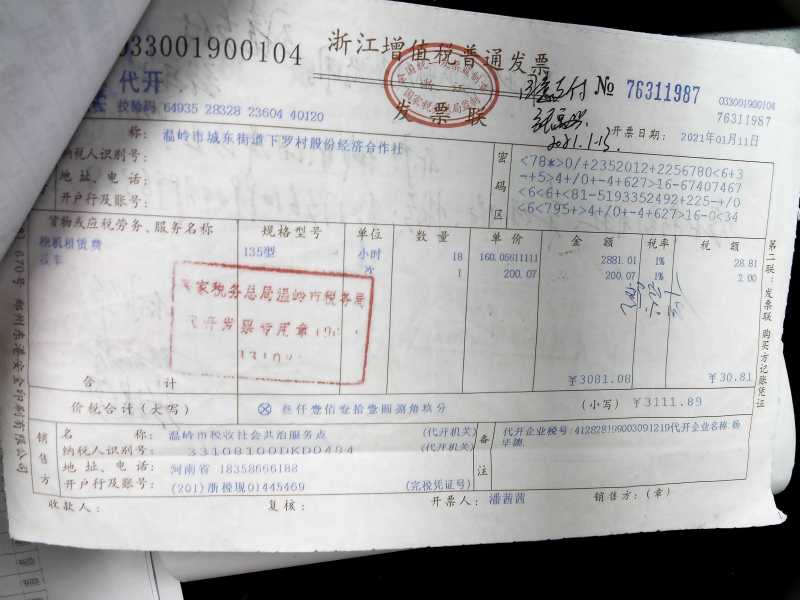 033001900104
浙江增值税普通发票
№ 76311987
033001900104
76311987
代开
发票联
校验码 64935 28328 23604 40120
开票日期： 2021年01月11日
2021.1.13
称： 温岭市城东街道下罗村股份经济合作社
纳税人识别号：
地址、电话：
开户行及账号：
密码区
<78*>0/+2352012+2256780<6+3
-+5>4+/0+-4+627>16-67407467
<6<6+<81-5193352492+225-+/0
<6<795+>4+/0+-4+627>16-0<34
货物或应税劳务、服务名称 规格型号 单位 数量 单价 金额 税率 税额
租赁费 135型 小时 18 160.05611111 2881.01 1% 28.81
次 1 200.07 200.07 1% 2.00
国家税务总局温岭市税务局
代开发票专用章
合计 ¥3081.08 ¥30.81
价税合计（大写） ⊗ 叁仟壹佰壹拾壹圆捌角玖分 （小写） ¥3111.89
销售方
名称： 温岭市税收社会共治服务点 （代开机关）
纳税人识别号： （代开机关）
地址、电话： 河南省 18358666188
开户行及账号： (201)浙税现01445469 （完税凭证号）
备注
代开企业税号：412828199003091219代开企业名称：杨华德
收款人： 复核： 开票人： 潘茜茜 销售方：（章）
第二联：发票联 购买方记账凭证
670号 郑州东港安全印刷有限公司